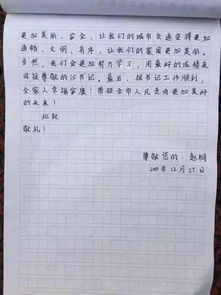 更加美丽、安全，让我们的城市交通变得更加
通畅、文明、有序，让我们的家园更加美丽。
当然，我们会更加努力学习，用最好的成绩来
回报尊敬的书记。最后，祝书记工作顺利，
全家人幸福安康！带领全市人民走向更加美好
的未来！
此致
敬礼！
尊敬您的：赵桐
2019年12月27日